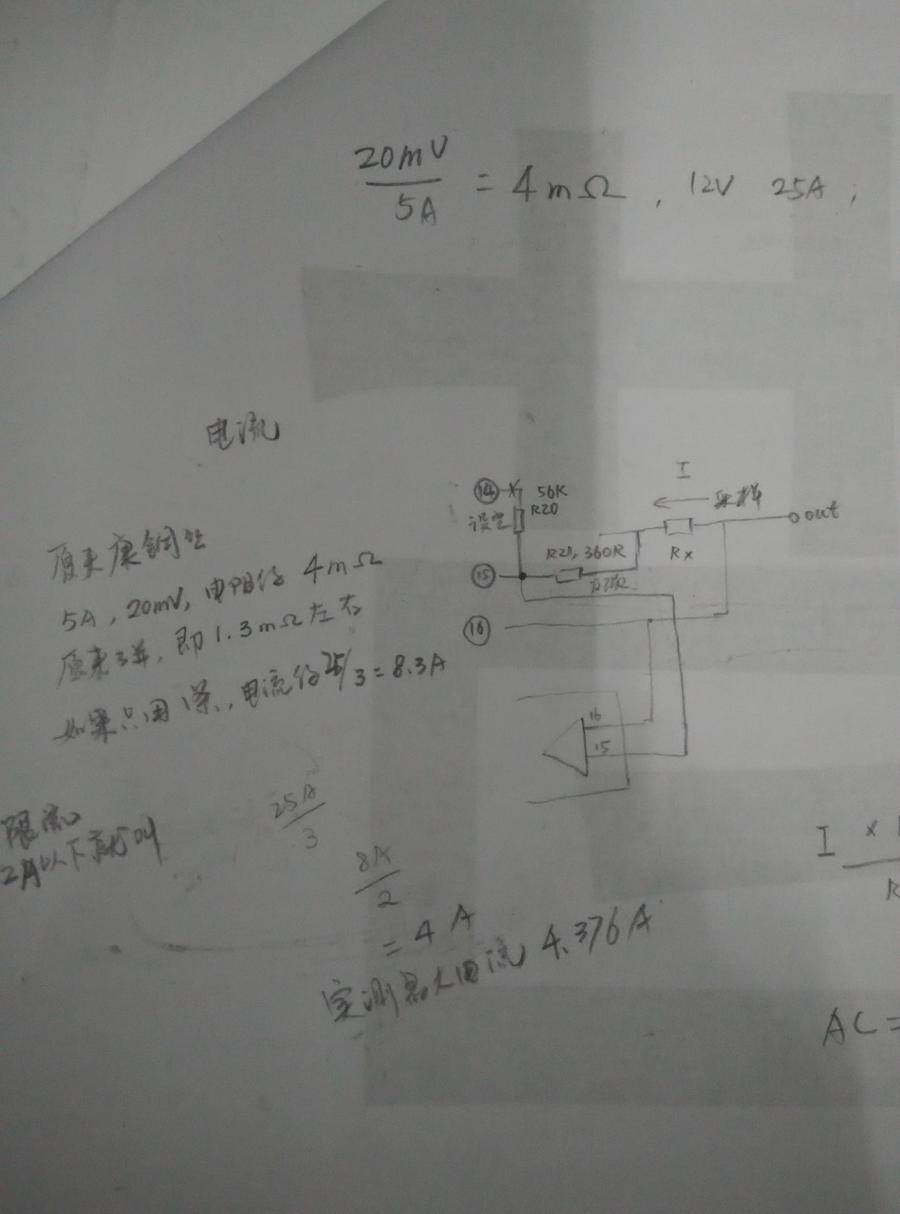 20mV
5A
= 4mΩ, 12V 25A;
电流
原来康铜丝
5A, 20mV, 电阻约 4mΩ
原来3并, 即1.3mΩ左右
如果只用1条, 电流约25/3=8.3A
14
56K
R20
设定
15
R21, 360R
16
I
采样
Rx
out
16
15
限流
2A以下就叫
25A
3
8A
2
= 4A
实测最大电流 4.376A
I ×
R
AC =